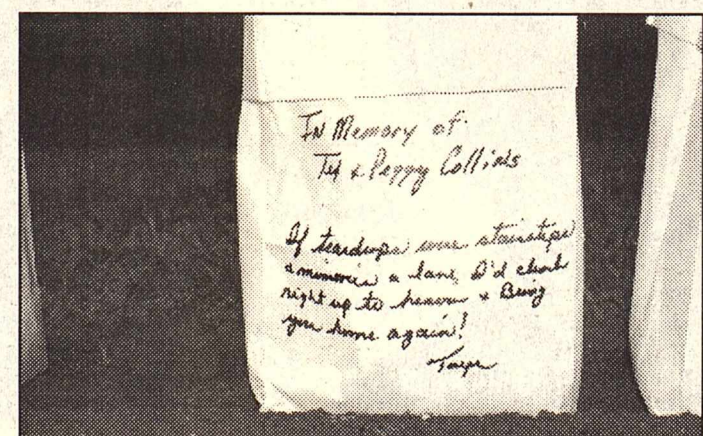 In Memory of
& Peggy Collins
If teardrops were stairsteps
& memories a lane, I'd climb
right up to heaven & Bring
you home again!